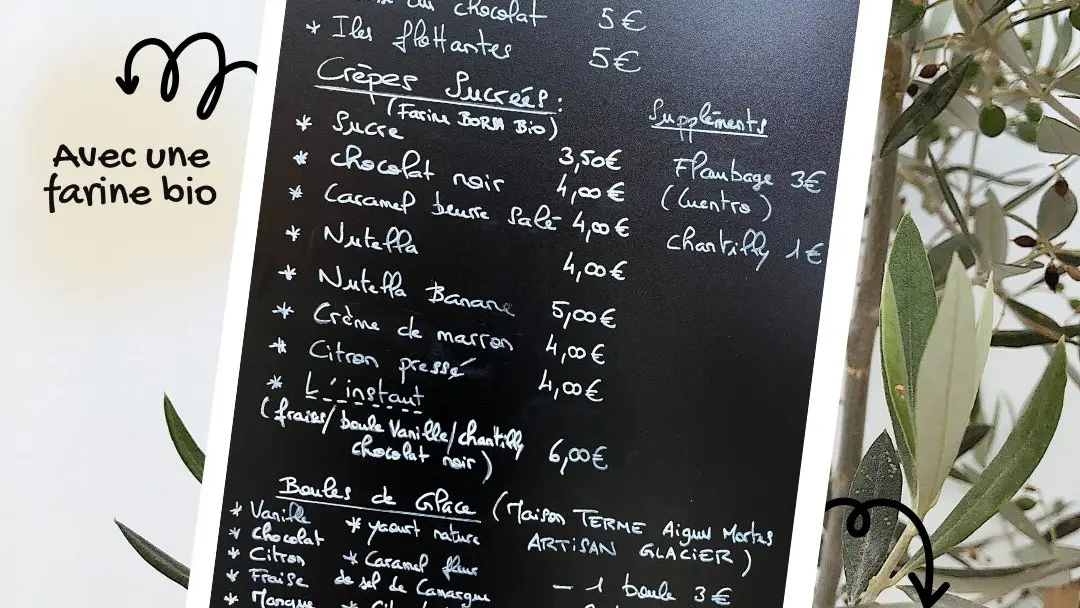 au chocolat 5€
* Iles flottantes 5€
Crêpes Sucrées:
(Farine BORA Bio)
* Sucre 3,50€
* chocolat noir 4,00€
* Caramel beurre salé 4,00€
* Nutella 4,00€
* Nutella Banane 5,00€
* Crème de marron 4,00€
* Citron pressé 4,00€
* L'instant
(fraises/boule Vanille/chantilly
chocolat noir) 6,00€
Suppléments
Flambage 3€
(Cuentro)
chantilly 1€
Boules de Glace (Maison TERME Aigues Mortes
ARTISAN GLACIER)
* Vanille * yaourt nature
* chocolat * Caramel fleur
* Citron de sel de Camargue
* Fraise
* Mangue
- 1 boule 3€
Avec une
farine bio